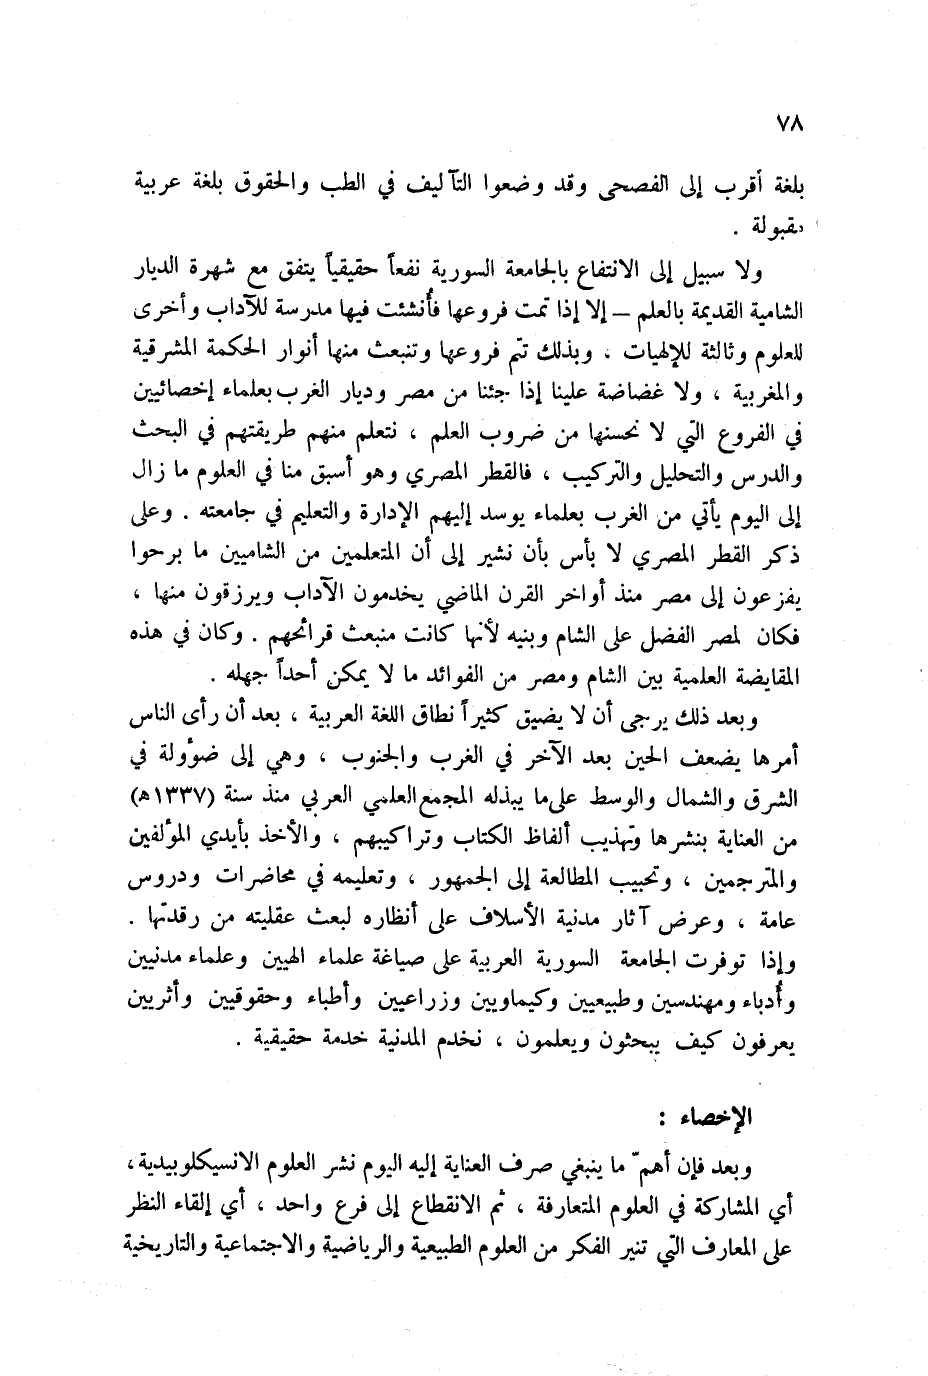 ٧٨
بلغة أقرب إلى الفصحى وقد وضعوا التآليف في الطب والحقوق بلغة عربية
مقبولة .
ولا سبيل إلى الانتفاع بالجامعة السورية نفعاً حقيقياً يتفق مع شهرة الديار
الشامية القديمة بالعلم – إلا إذا تمت فروعها فأُنشئت فيها مدرسة للآداب وأخرى
للعلوم وثالثة للإلهيات ، وبذلك تتم فروعها وتنبعث منها أنوار الحكمة المشرقية
والمغربية ، ولا غضاضة علينا إذا جئنا من مصر وديار الغرب بعلماء إخصائيين
في الفروع التي لا نحسنها من ضروب العلم ، نتعلم منهم طريقتهم في البحث
والدرس والتحليل والتركيب ، فالقطر المصري وهو أسبق منا في العلوم ما زال
إلى اليوم يأتي من الغرب بعلماء يوسد إليهم الإدارة والتعليم في جامعته . وعلى
ذكر القطر المصري لا بأس بأن نشير إلى أن المتعلمين من الشاميين ما برحوا
يفزعون إلى مصر منذ أواخر القرن الماضي يخدمون الآداب ويرزقون منها ،
فكان لمصر الفضل على الشام وبنيه لأنها كانت منبعث قرائحهم . وكان في هذه
المقايضة العلمية بين الشام ومصر من الفوائد ما لا يمكن أحداً جهله .
وبعد ذلك يرجى أن لا يضيق كثيراً نطاق اللغة العربية ، بعد أن رأى الناس
أمرها يضعف الحين بعد الآخر في الغرب والجنوب ، وهي إلى ضؤولة في
الشرق والشمال والوسط على ما يبذله المجمع العلمي العربي منذ سنة (١٣٣٧ه)
من العناية بنشرها وتهذيب ألفاظ الكتاب وتراكيبهم ، والأخذ بأيدي المؤلفين
والمترجمين ، وتحبيب المطالعة إلى الجمهور ، وتعليمه في محاضرات ودروس
عامة ، وعرض آثار مدنية الأسلاف على أنظاره لبعث عقليته من رقدتها .
وإذا توفرت الجامعة السورية العربية على صياغة علماء الهيين وعلماء مدنيين
وأُدباء ومهندسين وطبيعيين وكيماويين وزراعيين وأطباء وحقوقيين وأثريين
يعرفون كيف يبحثون ويعلمون ، نخدم المدنية خدمة حقيقية .
الإخصاء :
وبعد فإن أهمّ ما ينبغي صرف العناية إليه اليوم نشر العلوم الانسيكلوبيدية،
أي المشاركة في العلوم المتعارفة ، ثم الانقطاع إلى فرع واحد ، أي إلقاء النظر
على المعارف التي تنير الفكر من العلوم الطبيعية والرياضية والاجتماعية والتاريخية